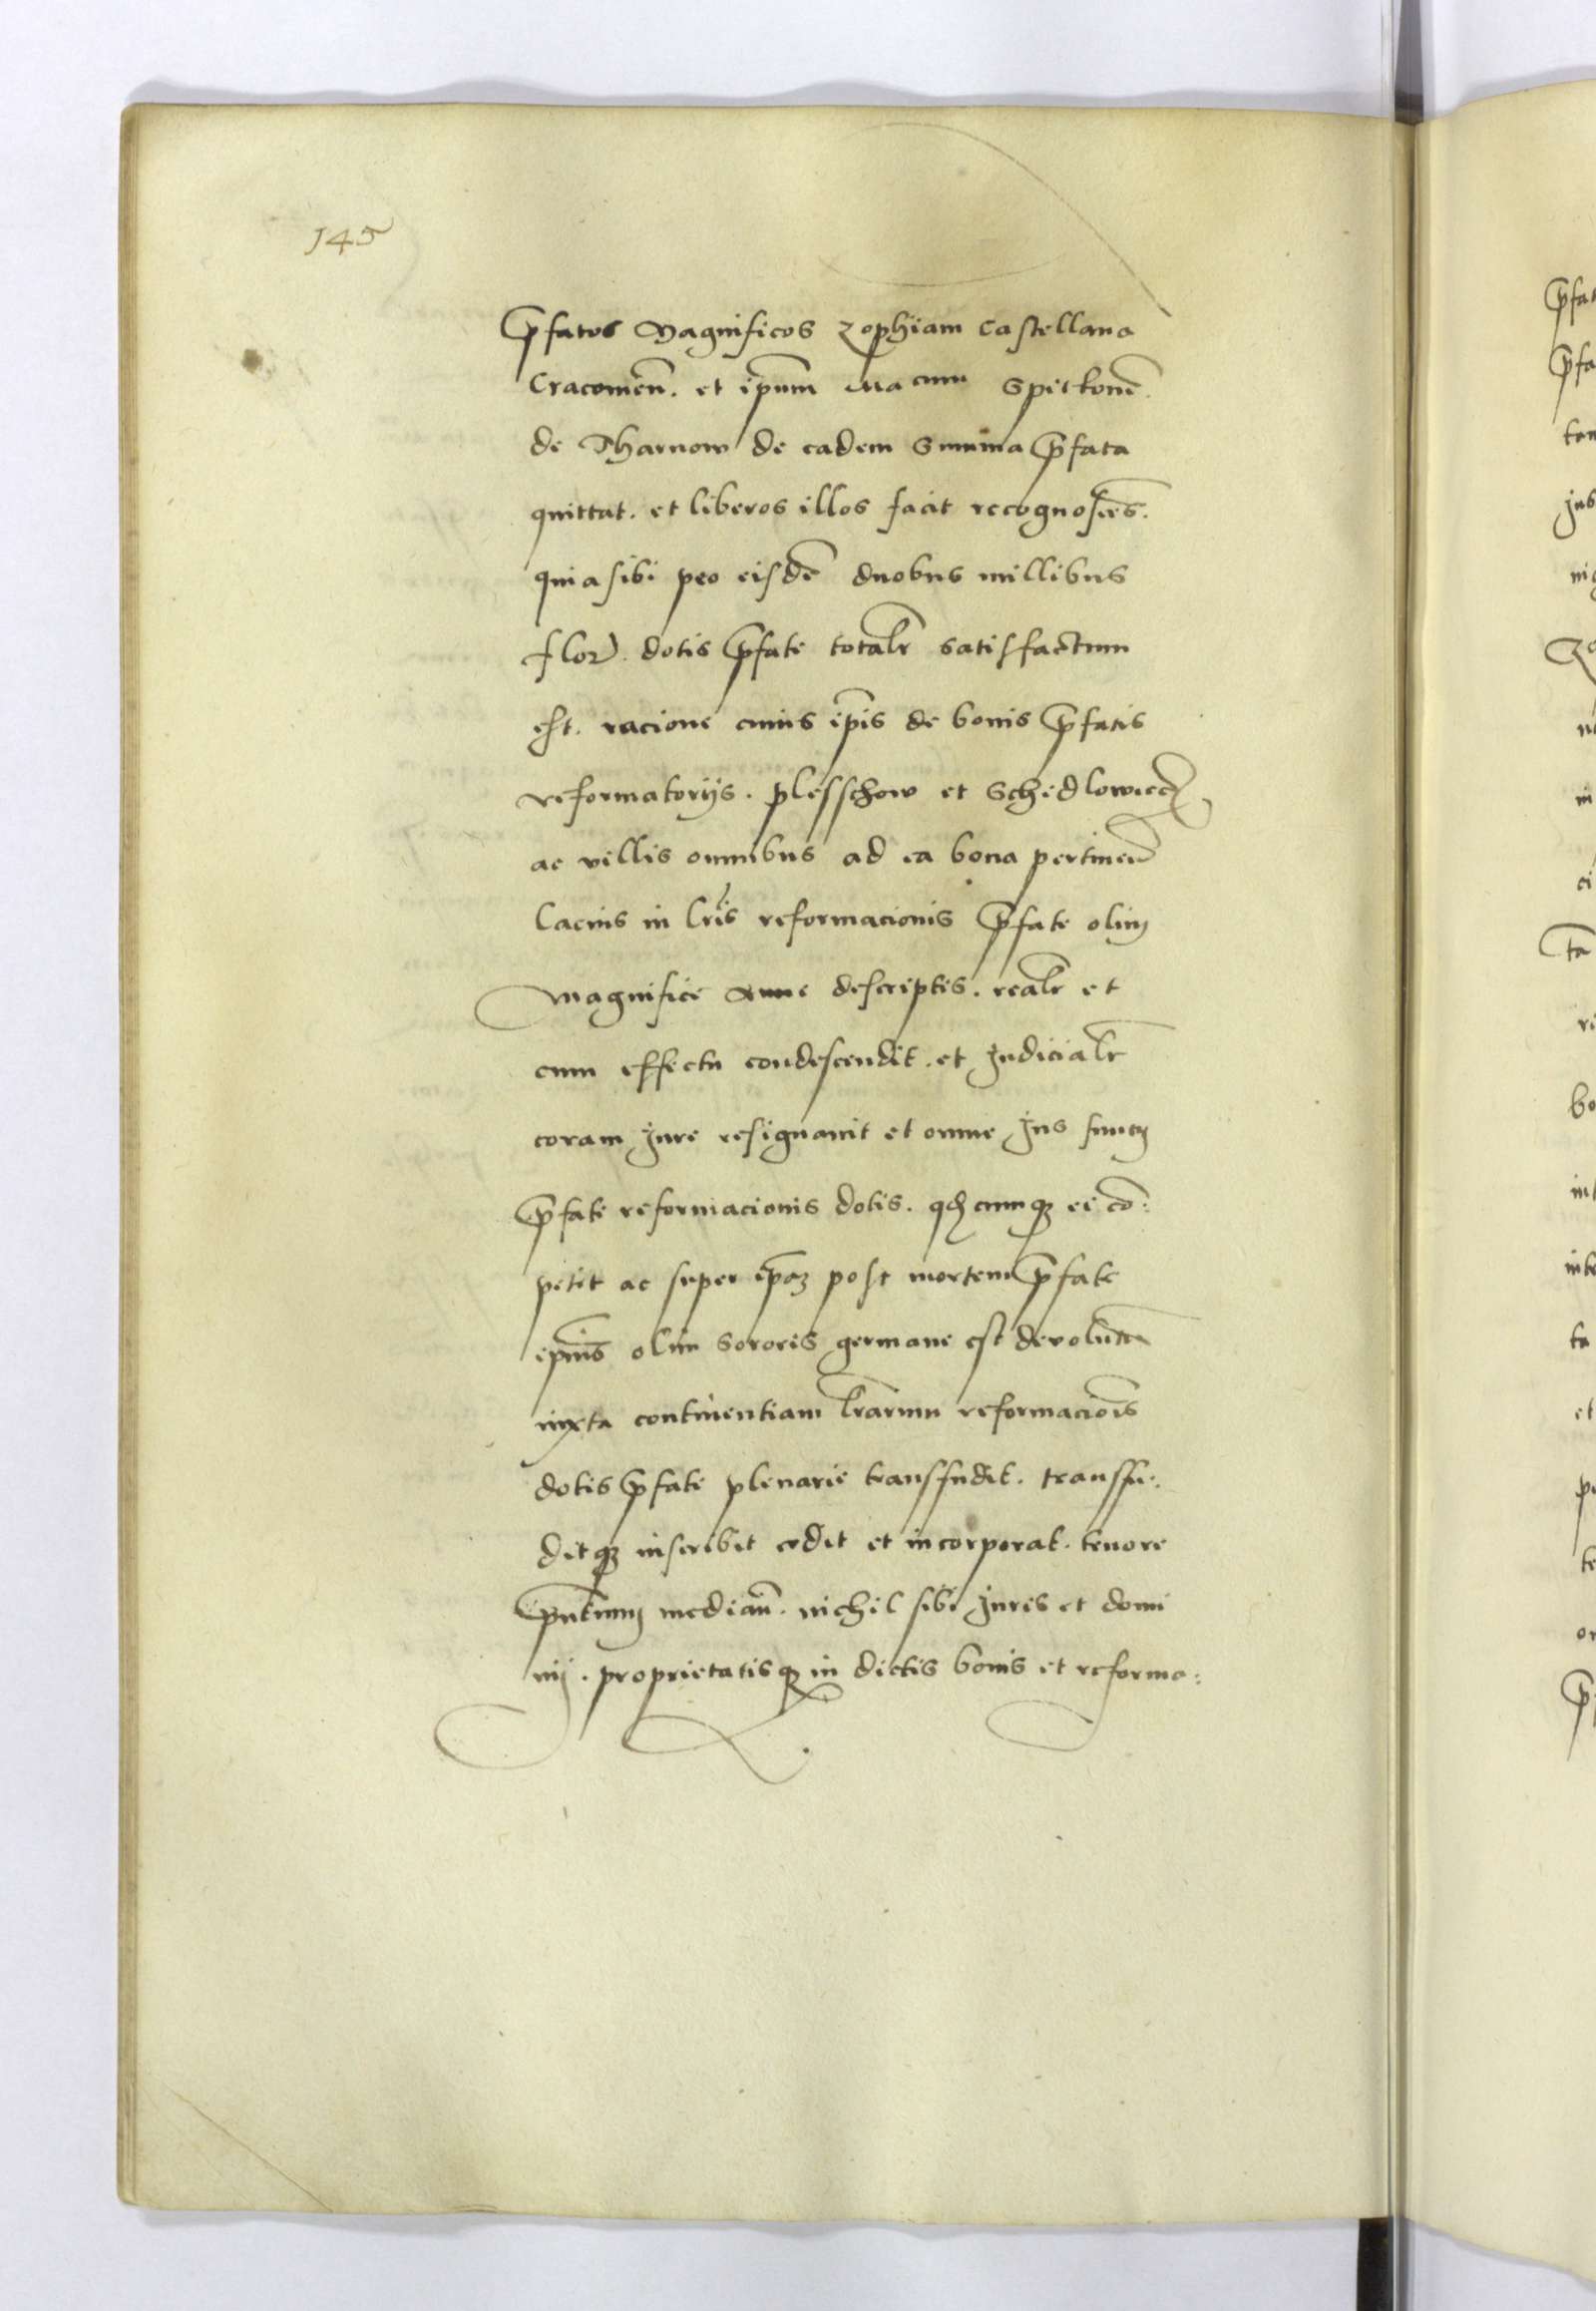 145
p̄fatos Magnificos Zophiam Castellana
Cracouień. et ip̄um Mā cum Spitkonē.
de Tharnow de eadem Summa p̄fata
quittat. et liberos illos facit recognoscēs.
quia sibi pro eisdē duobus millibus
flor. dotis p̄fate totalr̄ satisfactum
est. racione cuius ip̄is de bonis p̄fatis
reformatorijs. plesschow et Schedlowiecz
ac villis omnibus ad ea bona pertineñ
lacius in lr̄is reformacionis p̄fate olim
magnifice Anne descriptis. realr̄ et
cum effectu condescendit. et Judicialr̄
coram Jure resignauit et omne Jus suum
p̄fate reformacionis dotis. qdcumq3 ei cō:
petit ac super ip̄am post mortem p̄fate
ip̄ius olim Sororis germane est deuolutū
iuxta continentiam lr̄arum reformaciōis
dotis p̄fate plenarie transfudit. transfu:
ditq3 inscribit cedit et incorporat. tenore
p̄ntium mediañ. nichil sibi Juris et domi
nij. proprietatisq3 in dictis bonis et reforma: